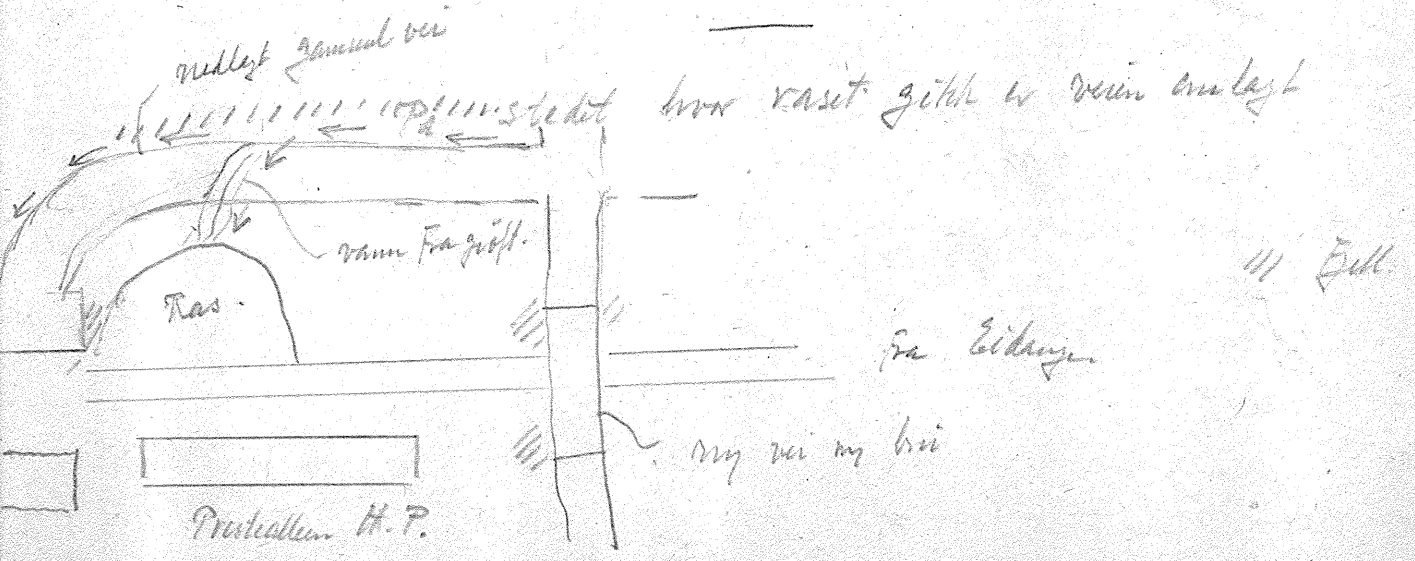 nedlagt gammel vei
På stedet hvor raset gikk er veien omlagt
vann fra grøft.
Ras.
Fjell.
fra Eidanger
ny vei ny bru
Prestealleen H.P.